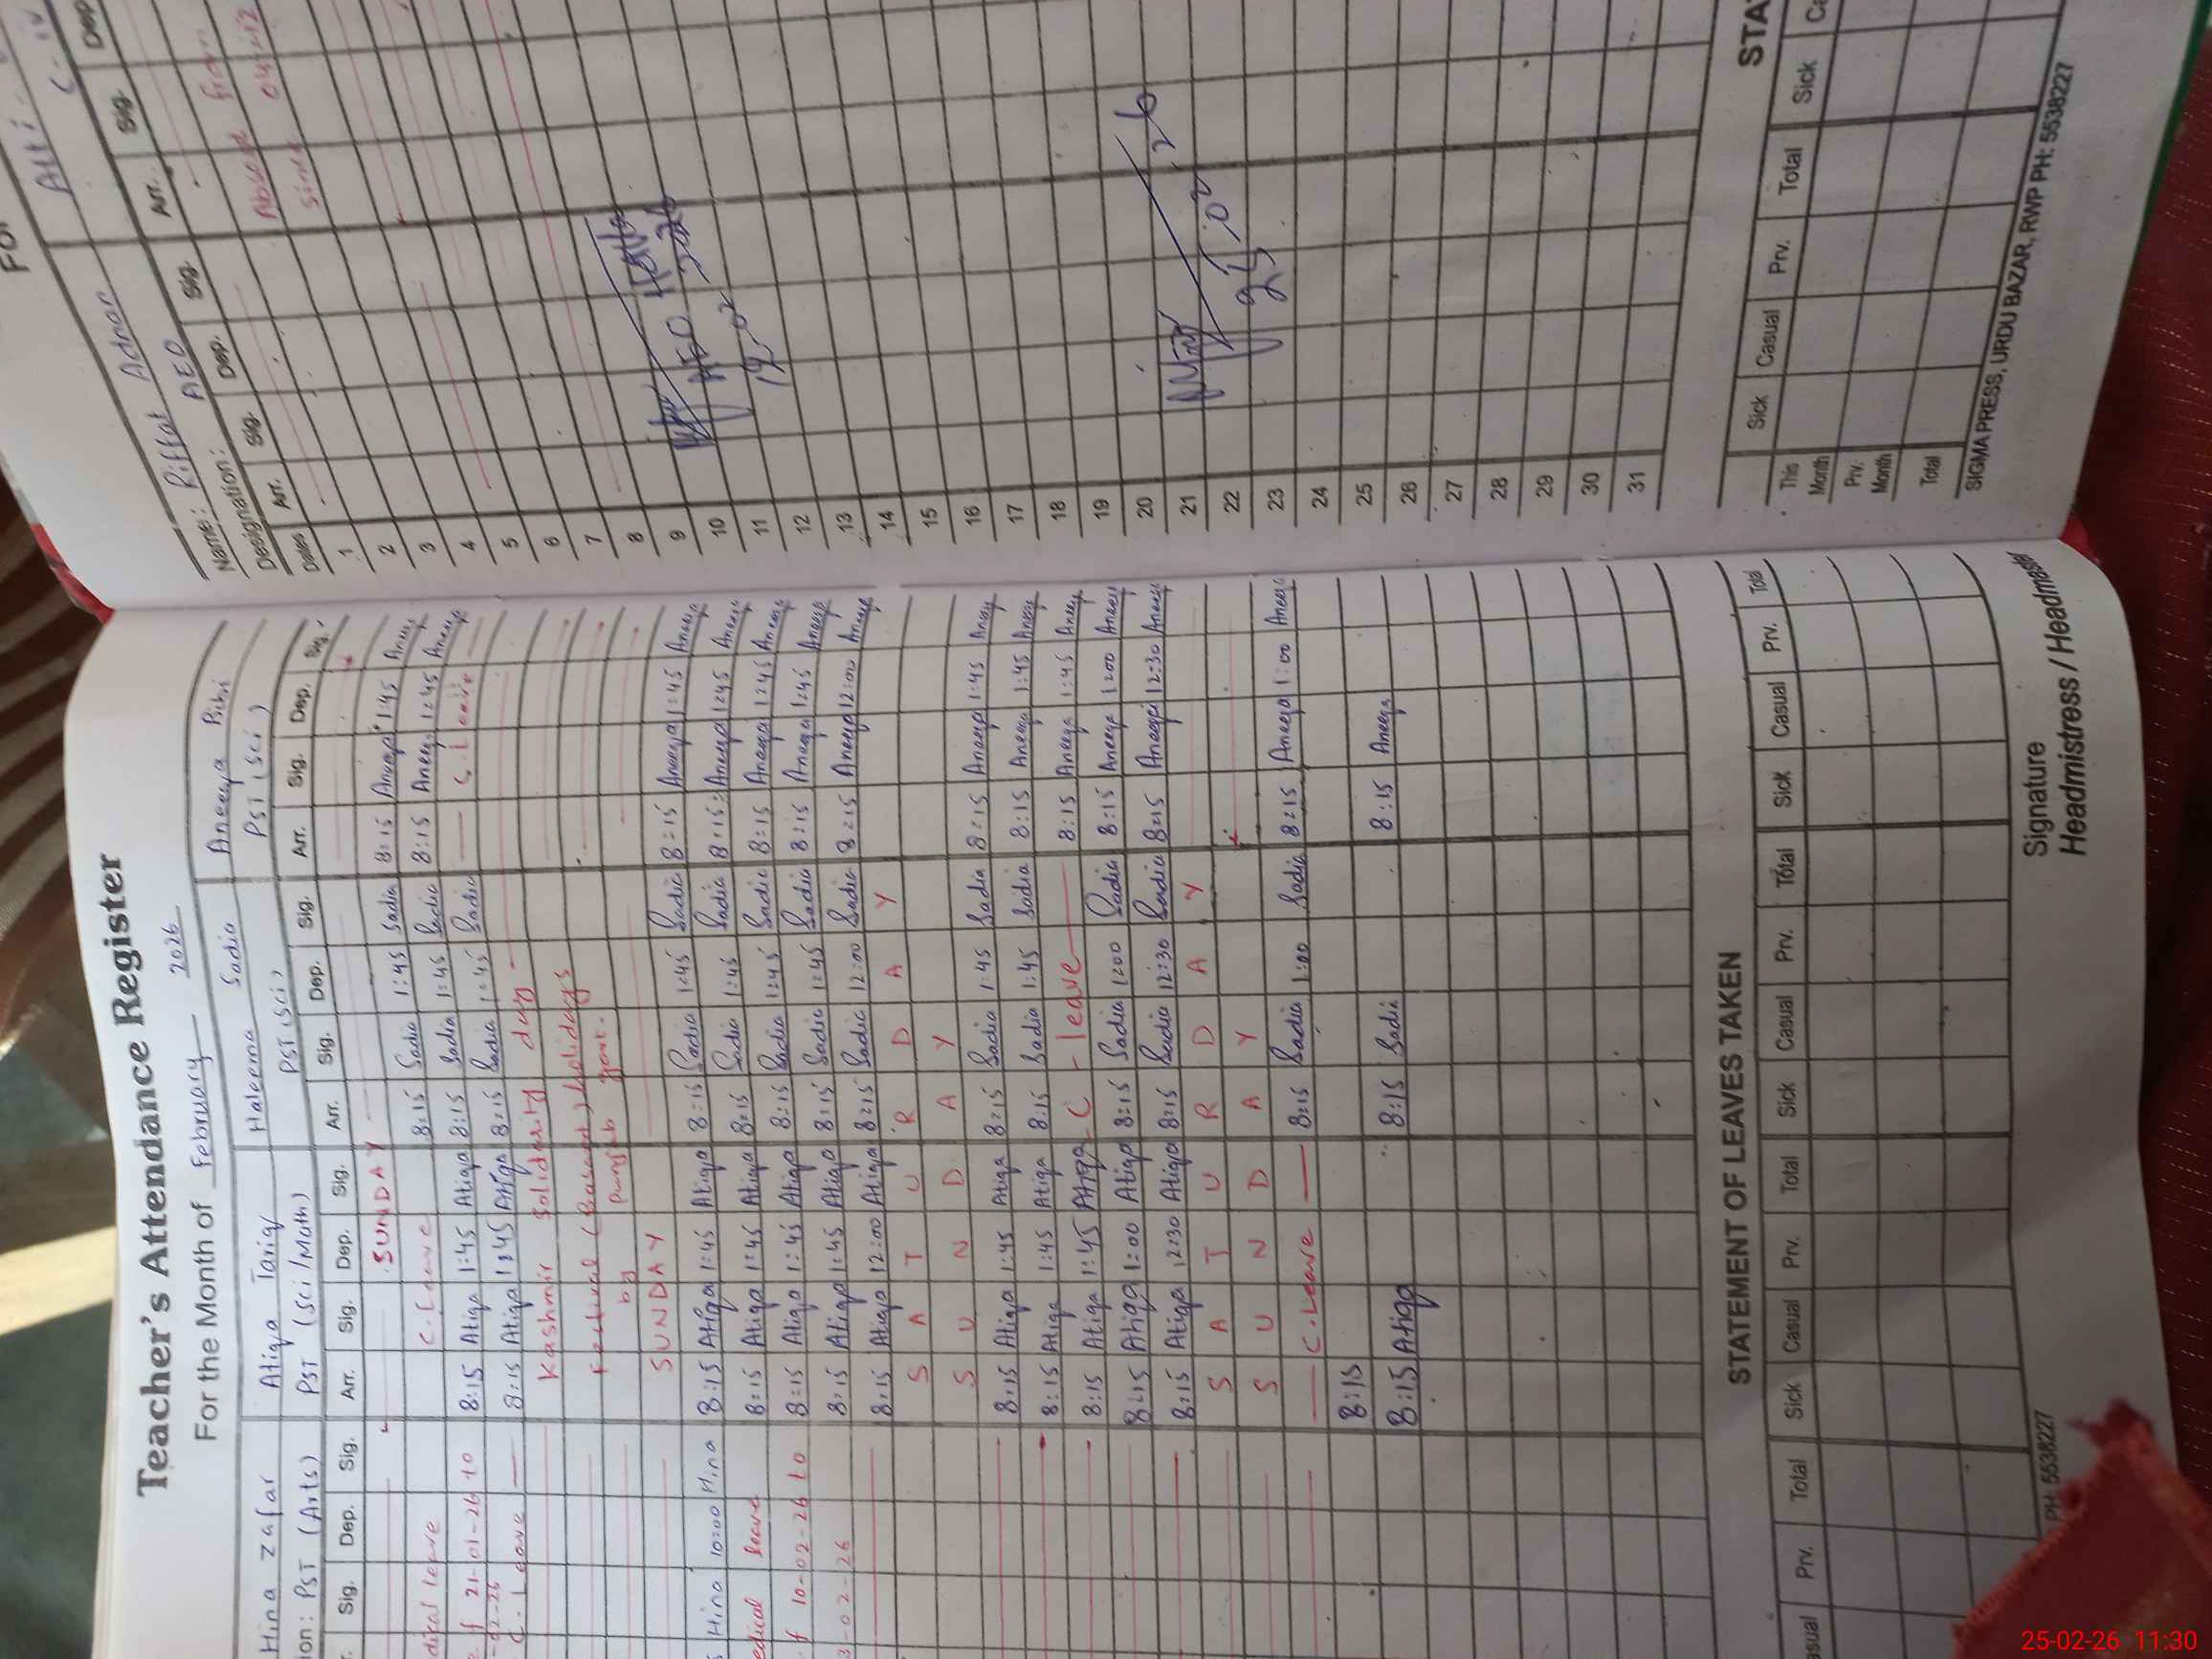 Teacher's Attendance Register
For the Month of February 2026
Hina Zafar Atiqa Tariq Haleema Sadia Aneeya Bibi
ion: PST (Arts) PST (Sci/Math) PST (Sci) PST (Sci)
Sig. Dep. Sig. Arr. Sig. Dep. Sig. Arr. Sig. Dep. Sig. Arr. Sig. Dep. Sig.
SUNDAY
dical leave C. Leave 8:15 Sadia 1:45 Sadia 8:15 Aneeya 1:45 Aneeya
f 21-01-26 to 8:15 Atiqa 1:45 Atiqa 8:15 Sadia 1:45 Sadia 8:15 Aneeya 1:45 Aneeya
C. Leave 8:15 Atiqa 1:45 Atiqa 8:15 Sadia 1:45 Sadia C. Leave
Kashmir Solidarity day
Festival (Basant) holidays
by Punjab govt.
SUNDAY
Hina 10:00 Hina 8:15 Atiqa 1:45 Atiqa 8:15 Sadia 1:45 Sadia 8:15 Aneeya 1:45 Aneeya
edical leave 8:15 Atiqa 1:45 Atiqa 8:15 Sadia 1:45 Sadia 8:15 Aneeya 1:45 Aneeya
f 10-02-26 to 8:15 Atiqa 1:45 Atiqa 8:15 Sadia 1:45 Sadia 8:15 Aneeya 1:45 Aneeya
3-02-26 8:15 Atiqa 1:45 Atiqa 8:15 Sadia 1:45 Sadia 8:15 Aneeya 1:45 Aneeya
8:15 Atiqa 12:00 Atiqa 8:15 Sadia 12:00 Sadia 8:15 Aneeya 12:00 Aneeya
S A T U R D A Y
S U N D A Y
8:15 Atiqa 1:45 Atiqa 8:15 Sadia 1:45 Sadia 8:15 Aneeya 1:45 Aneeya
8:15 Atiqa 1:45 Atiqa 8:15 Sadia 1:45 Sadia 8:15 Aneeya 1:45 Aneeya
8:15 Atiqa 1:45 Atiqa C - leave 8:15 Aneeya 1:45 Aneeya
8:15 Atiqa 1:00 Atiqa 8:15 Sadia 1:00 Sadia 8:15 Aneeya 1:00 Aneeya
8:15 Atiqa 12:30 Atiqa 8:15 Sadia 12:30 Sadia 8:15 Aneeya 12:30 Aneeya
S A T U R D A Y
S U N D A Y
C. Leave 8:15 Sadia 1:00 Sadia 8:15 Aneeya 1:00 Aneeya
8:15
8:15 Atiqa 8:15 Sadia 8:15 Aneeya
STATEMENT OF LEAVES TAKEN
asual Prv. Total Sick Casual Prv. Total Sick Casual Prv. Total Sick Casual Prv. Total
PH: 5538227
Signature
Headmistress / Headmaster
Name: Riffat Adnan
Designation: AEO
Dates Arr. Sig. Dep. Sig. Arr. Sig. Dep
Absent from
since
1
2
3
4
5
6
7
8
9
10 AEO
11 19-02
12
13
14
15
16
17
18
19
20
21
22 25.02 26
23
24
25
26
27
28
29
30
31
STA
Sick Casual Prv. Total Sick Ca
This Month
Prv. Month
Total
SIGMA PRESS, URDU BAZAR, RWP PH: 5538227
25-02-26 11:30